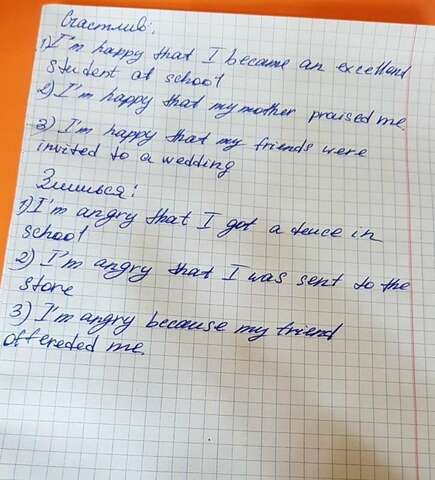 Счастлив:
1) I'm happy that I became an excellend
student at school
2) I'm happy that my mother praised me.
3) I'm happy that my friends were
invited to a wedding
Злишься:
1) I'm angry that I got a deuce in
school
2) I'm angry that I was sent to the
store
3) I'm angry because my friend
offereded me.